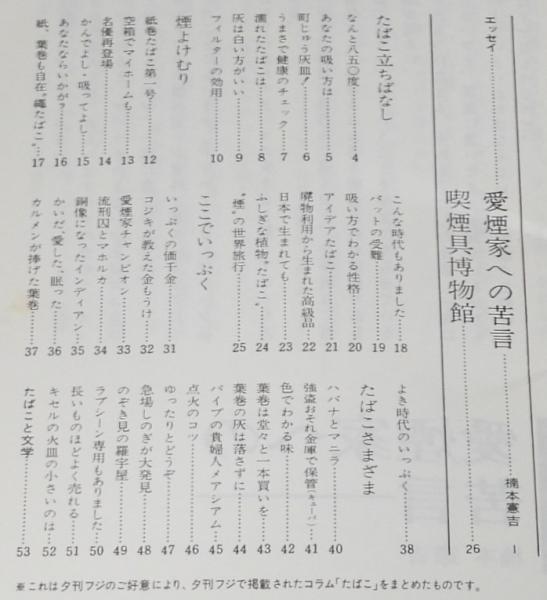 エッセイ……愛煙家への苦言……楠本憲吉 1
喫煙具博物館……26
たばこ立ちばなし
なんと八五〇度……4
あなたの吸い方は……5
町じゅう灰皿!……6
うまさで健康のチェック……7
濡れたたばこは……8
灰は白い方がいい……9
フィルターの効用……10
煙よけむり
紙巻たばこ第一号……12
空箱でマイホームも……13
名優再登場……14
かんでよし・吸ってよし……15
あなたならいかが?……16
紙、葉巻も自在“縄たばこ”……17
こんな時代もありました……18
バットの受難……19
吸い方でわかる性格……20
アイデアたばこ……21
廃物利用から生まれた高級品……22
日本で生まれても……23
ふしぎな植物“たばこ”……24
“煙”の世界旅行……25
ここでいっぷく
いっぷくの価千金……31
コジキが教えた金もうけ……32
愛煙家チャンピオン……33
流刑囚とマホルカ……34
銅像になったインディアン……35
かいだ、愛した、眠った……36
カルメンが捧げた葉巻……37
よき時代のいっぷく……38
たばこさまざま
ハバナとマニラ……40
強盗おそれ金庫で保管(キューバ)……41
色でわかる味……42
葉巻は堂々と一本買いを……43
葉巻の灰は落さずに……44
パイプの貴婦人メアシアム……45
点火のコツ……46
ゆったりとどうぞ……47
急場しのぎが大発見……48
のぞき見の羅宇屋……49
ラブシーン専用もありました……50
長いものほどよく売れる……51
キセルの火皿の小さいのは……52
たばこと文学……53
※これは夕刊フジのご好意により、夕刊フジで掲載されたコラム「たばこ」をまとめたものです。